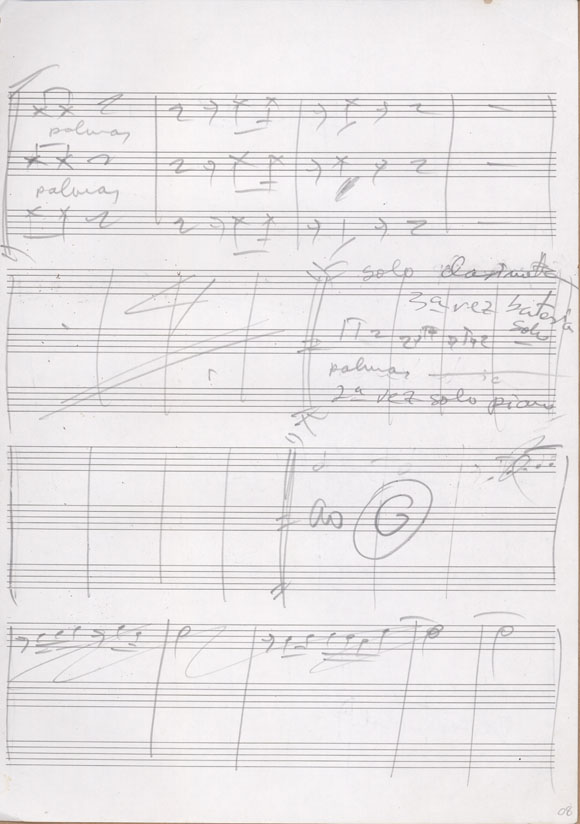 palmas
palmas
4
solo clarinete
3ª vez bateria
solo
palmas
2ª vez solo piano
ao G
08